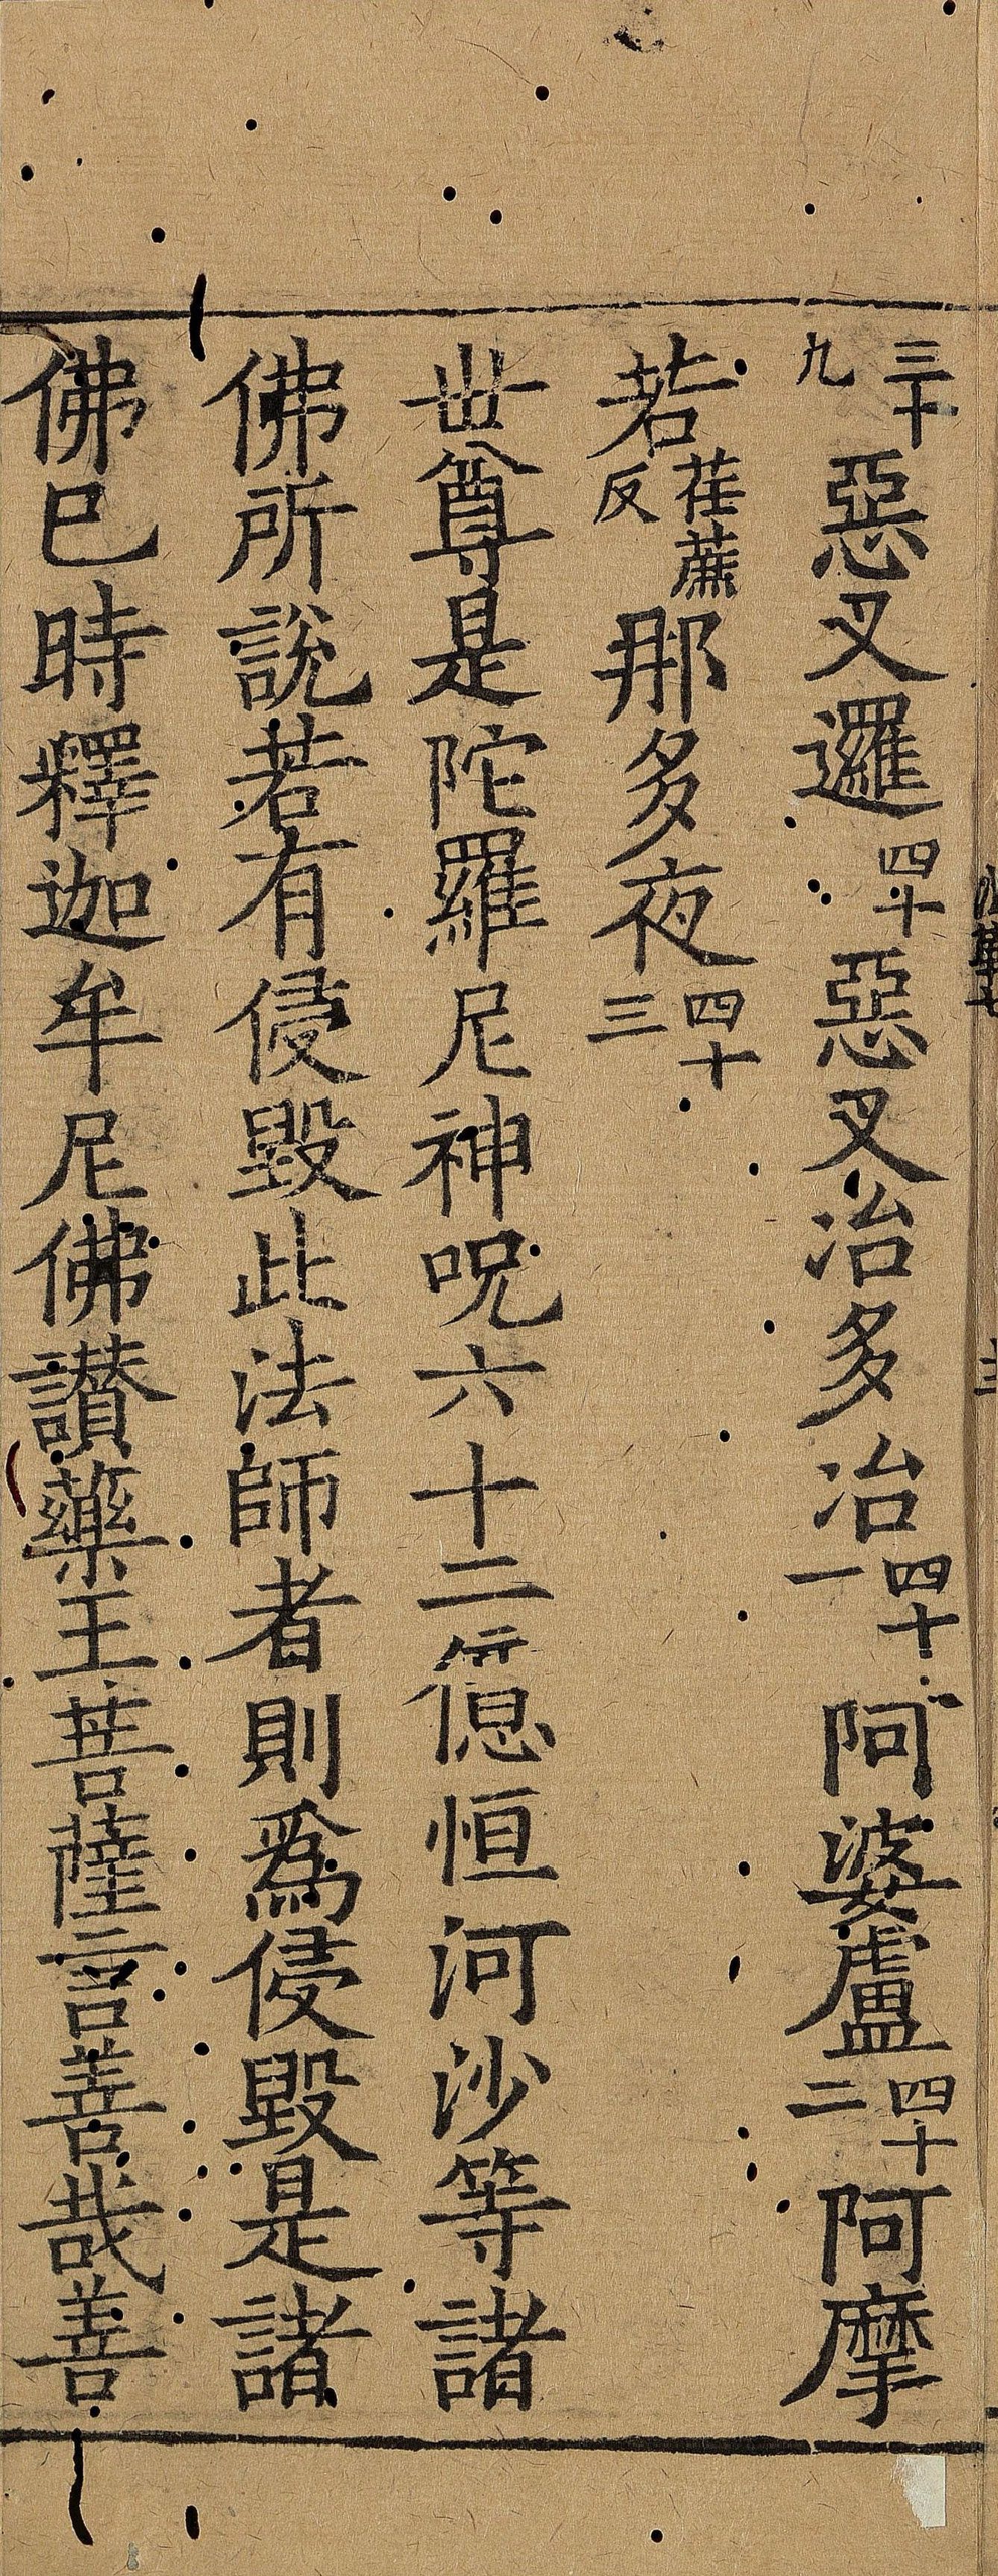 三十九惡叉邏四十惡叉冶多冶四十一阿婆盧四十二阿摩
若荏蔗反那多夜四十三
世尊是陀羅尼神呪六十二億恒河沙等諸
佛所說若有侵毀此法師者則爲侵毀是諸
佛巳時釋迦牟尼佛讃藥王菩薩言善哉善